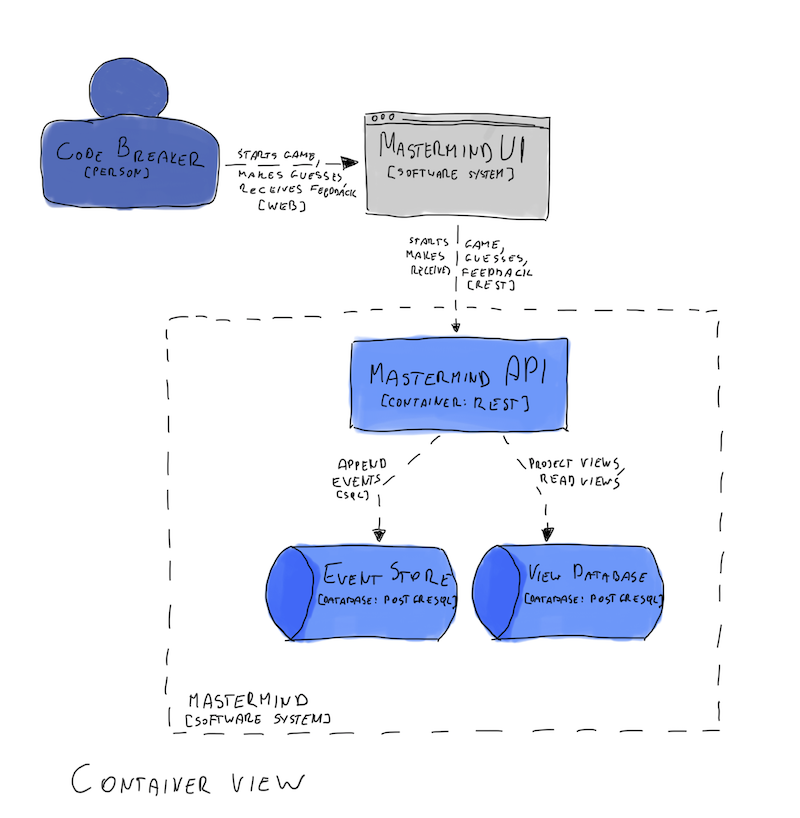 CODE BREAKER
[PERSON]
STARTS GAME,
MAKES GUESSES,
RECEIVES FEEDBACK
[WEB]
MASTERMIND UI
[SOFTWARE SYSTEM]
STARTS GAME,
MAKES GUESSES,
RECEIVES FEEDBACK
[REST]
MASTERMIND API
[CONTAINER: REST]
APPEND
EVENTS
[SQL]
PROJECT VIEWS,
READ VIEWS
EVENT STORE
[DATABASE: POSTGRESQL]
VIEW DATABASE
[DATABASE: POSTGRESQL]
MASTERMIND
[SOFTWARE SYSTEM]
CONTAINER VIEW